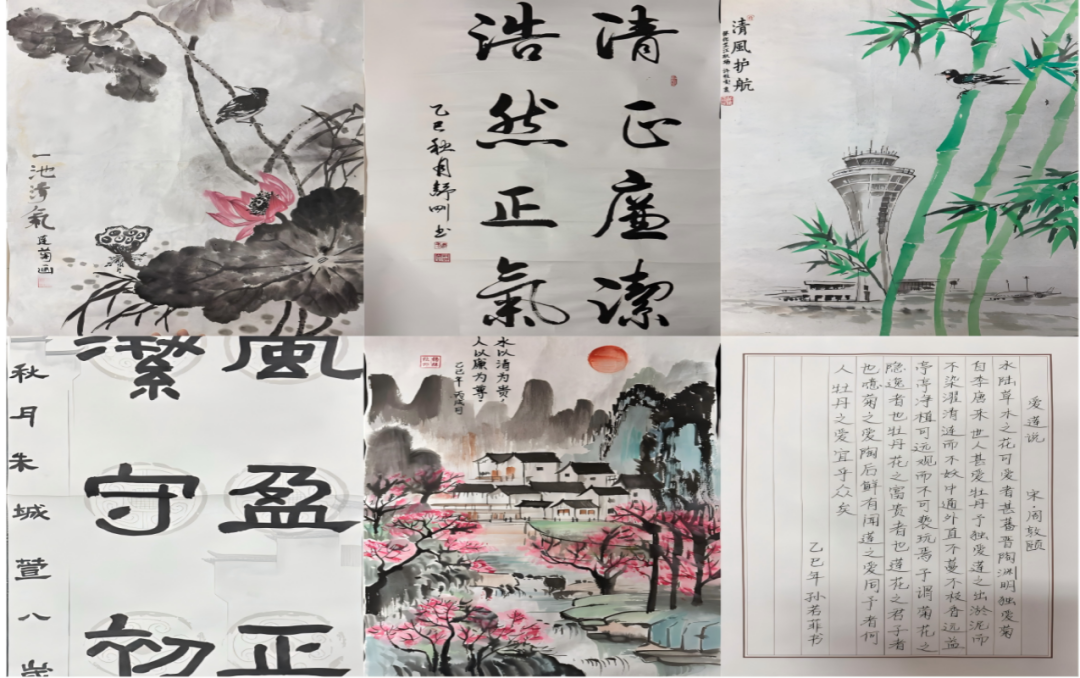 一池清氣
清正廉潔
浩然正氣
乙巳秋月舒刚书
清風护航
風盈正
潔守初
秋月朱城萱八岁
水以清为贵，
人以廉为尊。
乙巳年
爱莲说 宋·周敦颐
水陆草木之花可爱者甚蕃晋陶渊明独爱菊
自李唐来世人甚爱牡丹予独爱莲之出淤泥而
不染濯清涟而不妖中通外直不蔓不枝香远益
亭亭净植可远观而不可亵玩焉予谓菊花之
隐逸者也牡丹花之富贵者也莲花之君子者
也噫菊之爱陶后鲜有闻莲之爱同予者何
人牡丹之爱宜乎众矣
乙巳年孙若菲书